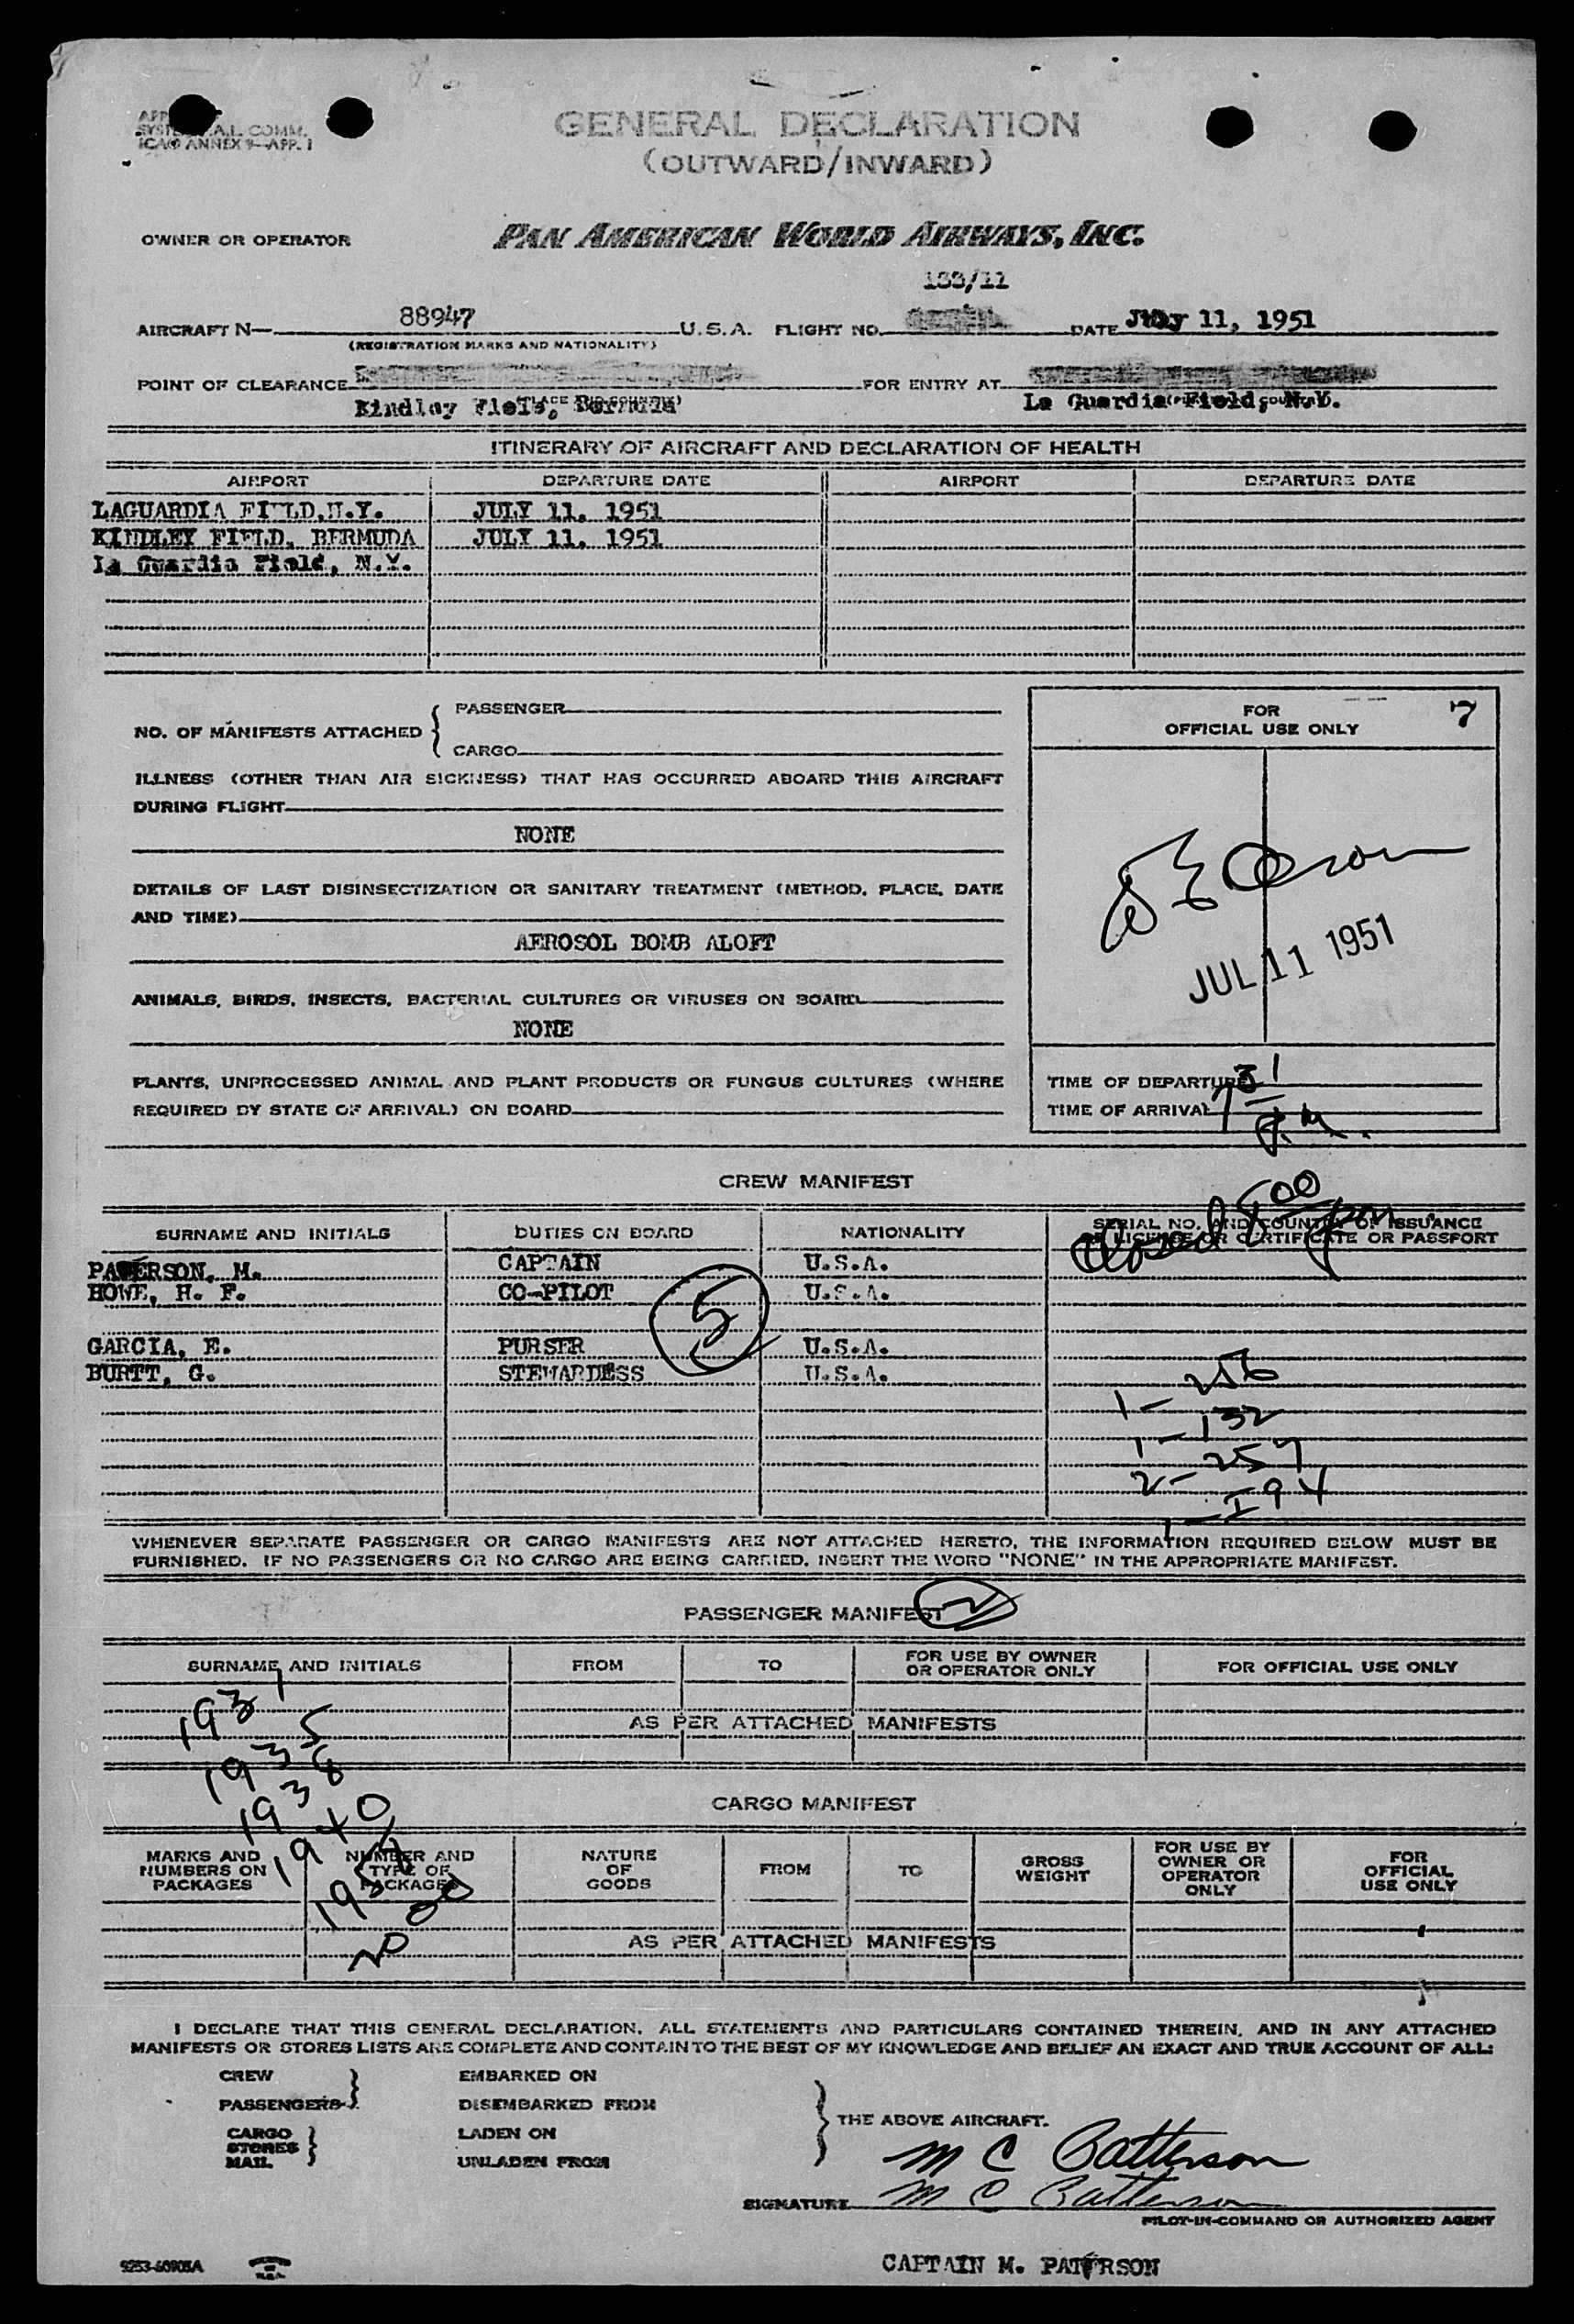 A.L. COMM.
ICAO ANNEX 9—APP. 1
GENERAL DECLARATION
(OUTWARD/INWARD)
OWNER OR OPERATOR PAN AMERICAN WORLD AIRWAYS, INC.
133/11
AIRCRAFT N— 88947 U.S.A. FLIGHT NO. DATE July 11, 1951
(REGISTRATION MARKS AND NATIONALITY)
POINT OF CLEARANCE FOR ENTRY AT
Kindley Field, Bermuda La Guardia Field, N.Y.
ITINERARY OF AIRCRAFT AND DECLARATION OF HEALTH
AIRPORT DEPARTURE DATE AIRPORT DEPARTURE DATE
LAGUARDIA FIELD, N.Y. JULY 11, 1951
KINDLEY FIELD, BERMUDA JULY 11, 1951
La Guardia Field, N.Y.
NO. OF MANIFESTS ATTACHED { PASSENGER
CARGO
FOR
OFFICIAL USE ONLY
7
ILLNESS (OTHER THAN AIR SICKNESS) THAT HAS OCCURRED ABOARD THIS AIRCRAFT
DURING FLIGHT
NONE
DETAILS OF LAST DISINSECTIZATION OR SANITARY TREATMENT (METHOD, PLACE, DATE
AND TIME)
AEROSOL BOMB ALOFT
JUL 11 1951
ANIMALS, BIRDS, INSECTS, BACTERIAL CULTURES OR VIRUSES ON BOARD
NONE
PLANTS, UNPROCESSED ANIMAL AND PLANT PRODUCTS OR FUNGUS CULTURES (WHERE
REQUIRED BY STATE OF ARRIVAL) ON BOARD
TIME OF DEPARTURE
TIME OF ARRIVAL 7 31 P.M.
CREW MANIFEST
Closed 8 00 pm
SURNAME AND INITIALS DUTIES ON BOARD NATIONALITY SERIAL NO. AND COUNTRY OF ISSUANCE
OF LICENSE OR CERTIFICATE OR PASSPORT
PATERSON, M. CAPTAIN U.S.A.
HOWE, H. F. CO-PILOT U.S.A.
5
GARCIA, E. PURSER U.S.A.
BURTT, G. STEWARDESS U.S.A.
1 - 256
1 - 132
2 - 257
1 - I94
WHENEVER SEPARATE PASSENGER OR CARGO MANIFESTS ARE NOT ATTACHED HERETO, THE INFORMATION REQUIRED BELOW MUST BE
FURNISHED. IF NO PASSENGERS OR NO CARGO ARE BEING CARRIED, INSERT THE WORD "NONE" IN THE APPROPRIATE MANIFEST.
PASSENGER MANIFEST
SURNAME AND INITIALS FROM TO FOR USE BY OWNER
OR OPERATOR ONLY FOR OFFICIAL USE ONLY
1931
AS PER ATTACHED MANIFESTS
1935
1938
1940
CARGO MANIFEST
MARKS AND
NUMBERS ON
PACKAGES NUMBER AND
TYPE OF
PACKAGES NATURE
OF
GOODS FROM TO GROSS
WEIGHT FOR USE BY
OWNER OR
OPERATOR
ONLY FOR
OFFICIAL
USE ONLY
AS PER ATTACHED MANIFESTS
I DECLARE THAT THIS GENERAL DECLARATION, ALL STATEMENTS AND PARTICULARS CONTAINED THEREIN, AND IN ANY ATTACHED
MANIFESTS OR STORES LISTS ARE COMPLETE AND CONTAIN TO THE BEST OF MY KNOWLEDGE AND BELIEF AN EXACT AND TRUE ACCOUNT OF ALL:
CREW EMBARKED ON
PASSENGERS DISEMBARKED FROM
THE ABOVE AIRCRAFT.
CARGO LADEN ON
STORES
MAIL UNLADEN FROM
M C Patterson
SIGNATURE M C Patterson
PILOT-IN-COMMAND OR AUTHORIZED AGENT
CAPTAIN M. PATERSON